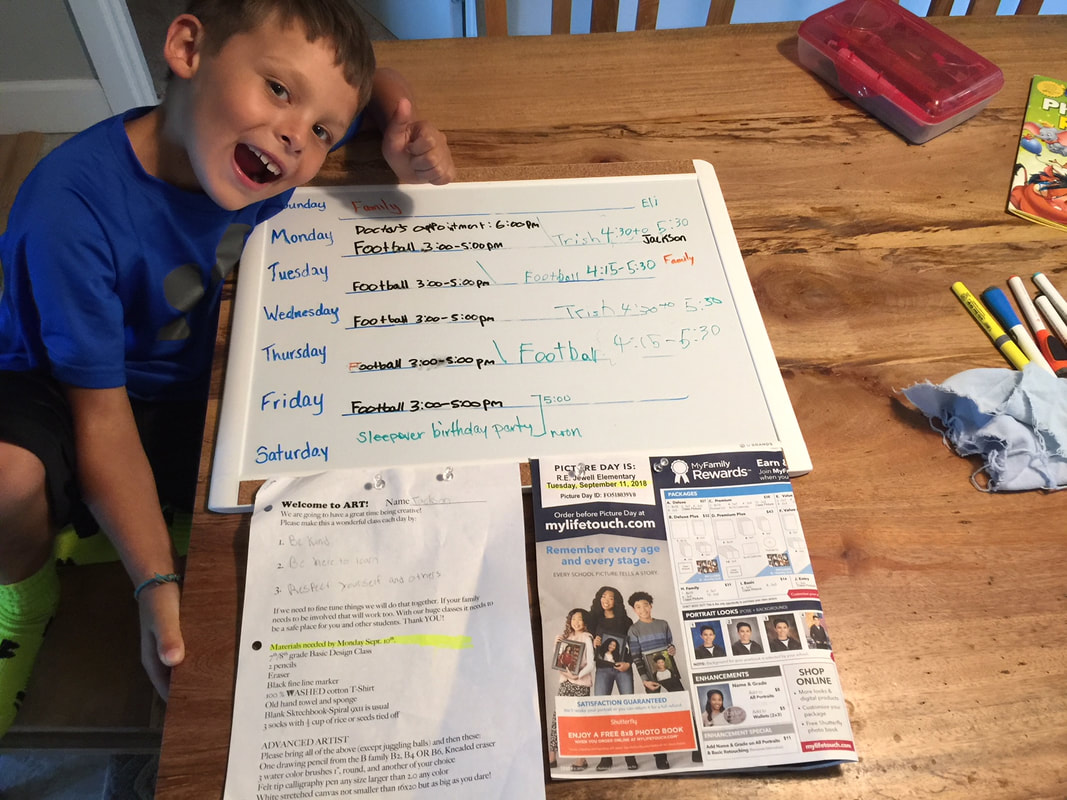 Sunday Family Eli
Monday Doctor's appointment: 6:00pm
Football 3:00-5:00pm Trish 4:30to 5:30
Jackson
Tuesday
Football 3:00-5:00pm Football 4:15-5:30 Family
Wednesday Football 3:00-5:00pm Trish 4:30to 5:30
Thursday Football 3:00-5:00 pm Football 4:15-5:30
Friday Football 3:00-5:00pm 5:00
Saturday Sleepover birthday party noon
Welcome to ART! Name Jackson
We are going to have a great time being creative!
Please make this a wonderful class each day by:
1. Be Kind
2. Be here to learn
3. Respect yourself and others
If we need to fine tune things we will do that together. If your family
needs to be involved that will work too. With our huge classes it needs to
be a safe place for you and other students. Thank YOU!
Materials needed by Monday Sept. 10th:
7th/8th grade Basic Design Class
2 pencils
Eraser
Black fine line marker
100 % WASHED cotton T-Shirt
Old hand towel and sponge
Blank Sktrechbook Spiral 9x11 is usual
3 socks with 1/2 cup of rice or seeds tied off
ADVANCED ARTIST
Please bring all of the above (except juggling balls) and then these:
One drawing pencil from the B family B2, B4 OR B6, Kneaded eraser
3 water color brushes 1", round, and another of your choice
Felt tip calligraphy pen any size larger than 2.0 any color
White stretched canvas not smaller than 16x20 but as big as you dare!
PICTURE DAY IS:
R.E. Jewell Elementary
Tuesday, September 11, 2018
Picture Day ID:
Order before Picture Day at
mylifetouch.com
Remember every age
and every stage.
EVERY SCHOOL PICTURE TELLS A STORY.
SATISFACTION GUARANTEED
Shutterfly
ENJOY A FREE 8x8 PHOTO BOOK
WHEN YOU ORDER ONLINE AT MYLIFETOUCH.COM
MyFamily
Rewards
Earn
PACKAGES
PORTRAIT LOOKS (POSE + BACKGROUND)
1 2 3 4
ENHANCEMENTS
Name & Grade
All Portraits $8
Wallets
ENHANCEMENT SPECIAL
Add Name & Grade on All Portraits $11
& Basic Retouching
SHOP
ONLINE
• More looks &
digital products
• Customize your
package
• Free Shutterfly
photo book
mylifetouch.com